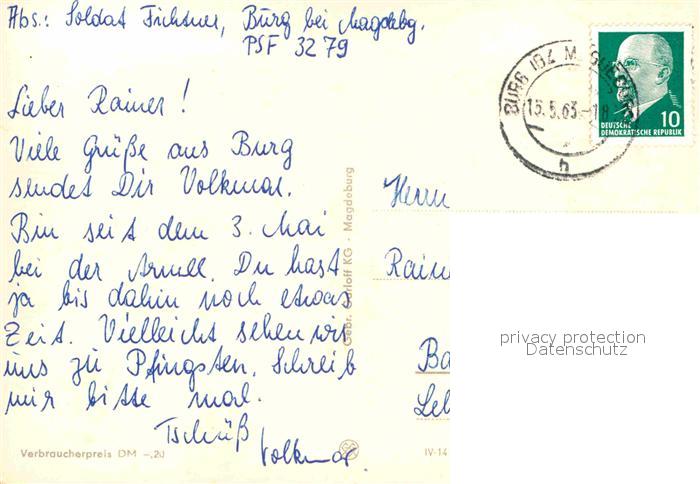 Abs.: Soldat Fichtner, Burg bei Magdebg.
PSF 3279
BURG (BZ MAGDEBURG)
15.5.63.-18
h
10
DEUTSCHE
DEMOKRATISCHE REPUBLIK
Lieber Rainer!
Viele Grüße aus Burg
sendet Dir Volkmar.
Bin seit dem 3. Mai
bei der Armee. Du hast
ja bis dahin noch etwas
Zeit. Vielleicht sehen wir
uns zu Pfingsten. Schreib
mir bitte mal.
Tschüß
Volkmar.
Verbraucherpreis DM -,20
Gebr. Garloff KG · Magdeburg
Herrn
Rain
Ba
IV-14
privacy protection
Datenschutz